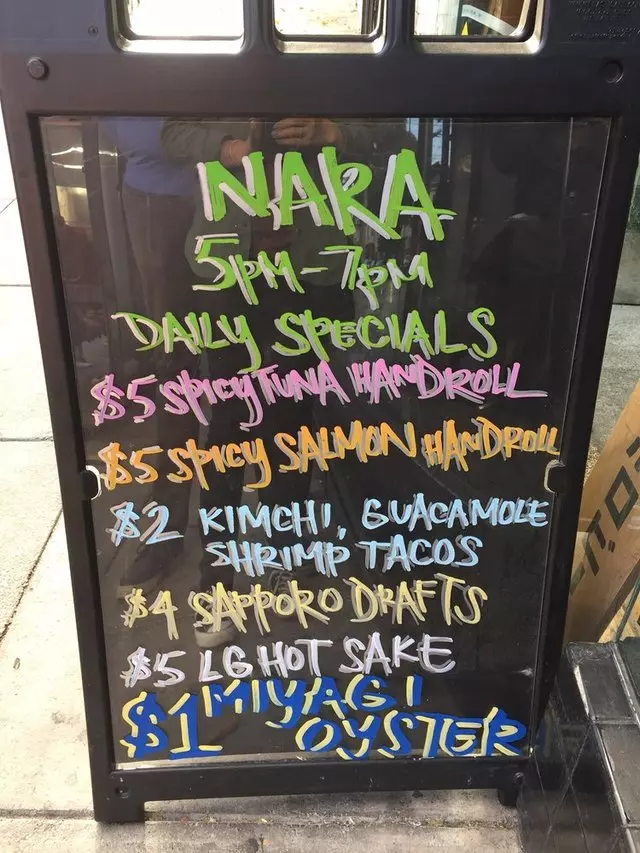 NARA
5PM-7PM
DAILY SPECIALS
$5 SPICY TUNA HANDROLL
$5 SPICY SALMON HANDROLL
$2 KIMCHI, GUACAMOLE
SHRIMP TACOS
$4 SAPPORO DRAFTS
$5 LG HOT SAKE
$1 MIYAGI
OYSTER